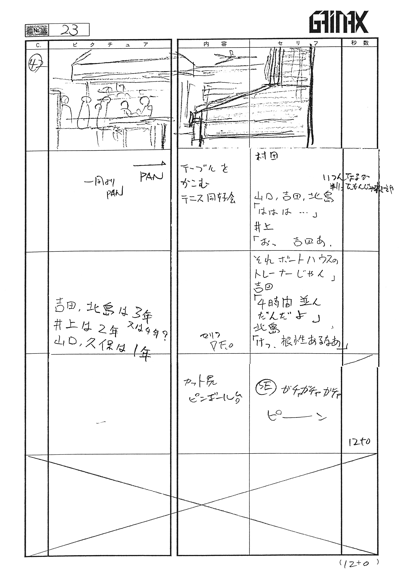 23
GAINAX
C.
ピクチュア
内容
セリフ
秒数
43
PAN
PAN
テーブルを
かこむ
テニス同好会
村田
山口、吉田、北島
「ははは…」
井上
「お、吉田あ、
それボートハウスの
トレーナーじゃん」
吉田
「4時間並ん
だんだよ」
北島
「けっ、根性あるなあ」
吉田、北島は3年
井上は2年 又は4年?
山口、久保は1年
セリフ
カット尻
ピンボール台
SE ガチャガチャガチャ
ピーーン
12+0
(12+0)